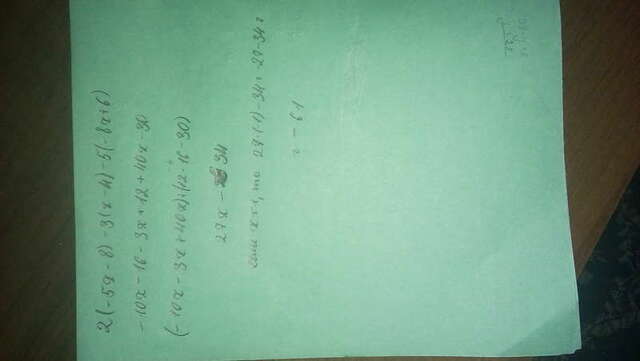 2(-5x-8)-3(x-4)-5(-8x+6)
-10x-16-3x+12+40x-30
(-10x-3x+40x)+(12-16-30)
27x-34
если x=-1, то 27(-1)-34=-27-34=
=-61